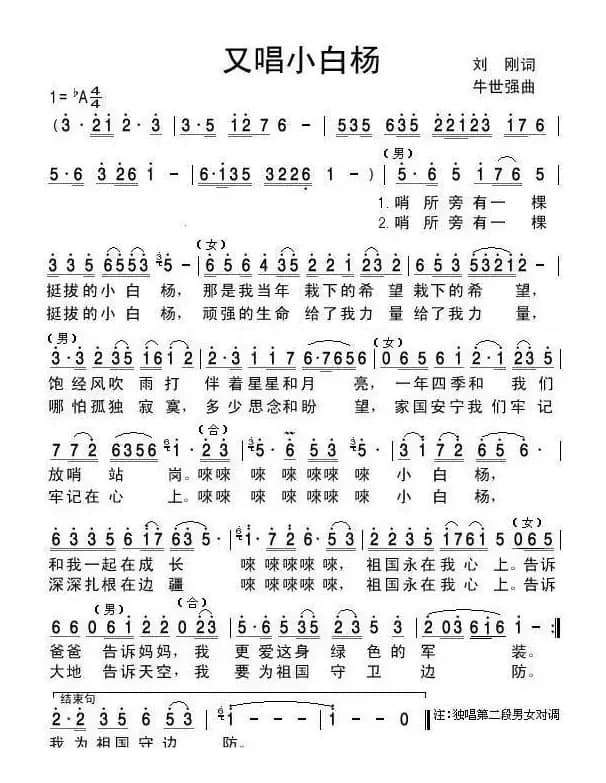 又唱小白杨
刘 刚词
1=♭A 4/4
牛世强曲
(3·21 2·3 | 3·5 1276 - | 535 635 22123 176 |
(男)
5·6 3261 - | 6·135 32261 - ) | 5·6 5 176 5
1.哨所旁有一棵
2.哨所旁有一棵
(女)
3 3 5 6553 5 - | 6 5 6 1 231 2 2 1 232 | 6 2 5 53212 - |
挺拔的小白杨，那是我当年 栽下的希 望栽下的希 望，
挺拔的小白杨，顽强的生命 给了我力 量给了我力 量，
(男) (女)
3·3 2 235 1612 | 2·3 1 115 6·7656 | 065 61 2·1 2 3
饱经风吹 雨打 伴着星星和月 亮，一年四季和 我们
哪怕孤独 寂寞，多少思念和盼 望，家国安宁我们牢记
(合)
7 7 2 6356 1·23 | 5·6 5 3 5·35 | 3 1 72 65 6·
放哨 站 岗。唻唻 唻唻 唻唻唻唻 小 白 杨，
牢记在心 上。唻唻 唻唻 唻唻唻唻 小 白 杨，
(女)
3 3 3 5 6 17 635· | 1·7 26 5·3 5 | 2235 1761 5 065
和我一起在成 长 唻唻唻唻唻，祖国永在我心上。告诉
深深扎根在边 疆 唻唻唻唻唻，祖国永在我心上。告诉
(男) (合)
6 6 06 122 023 | 5·3 5 35 235 3 | 2 03 616 1 - :||
爸爸 告诉妈妈，我 更爱这身 绿色的军 装。
大地 告诉天空，我 要为祖国 守 卫 边 防。
结束句
5·3 5 235 3 2·3 | 1 - - - | 1 - - 0 ‖ 注：独唱第二段男女对调
我 为祖国守边 防。